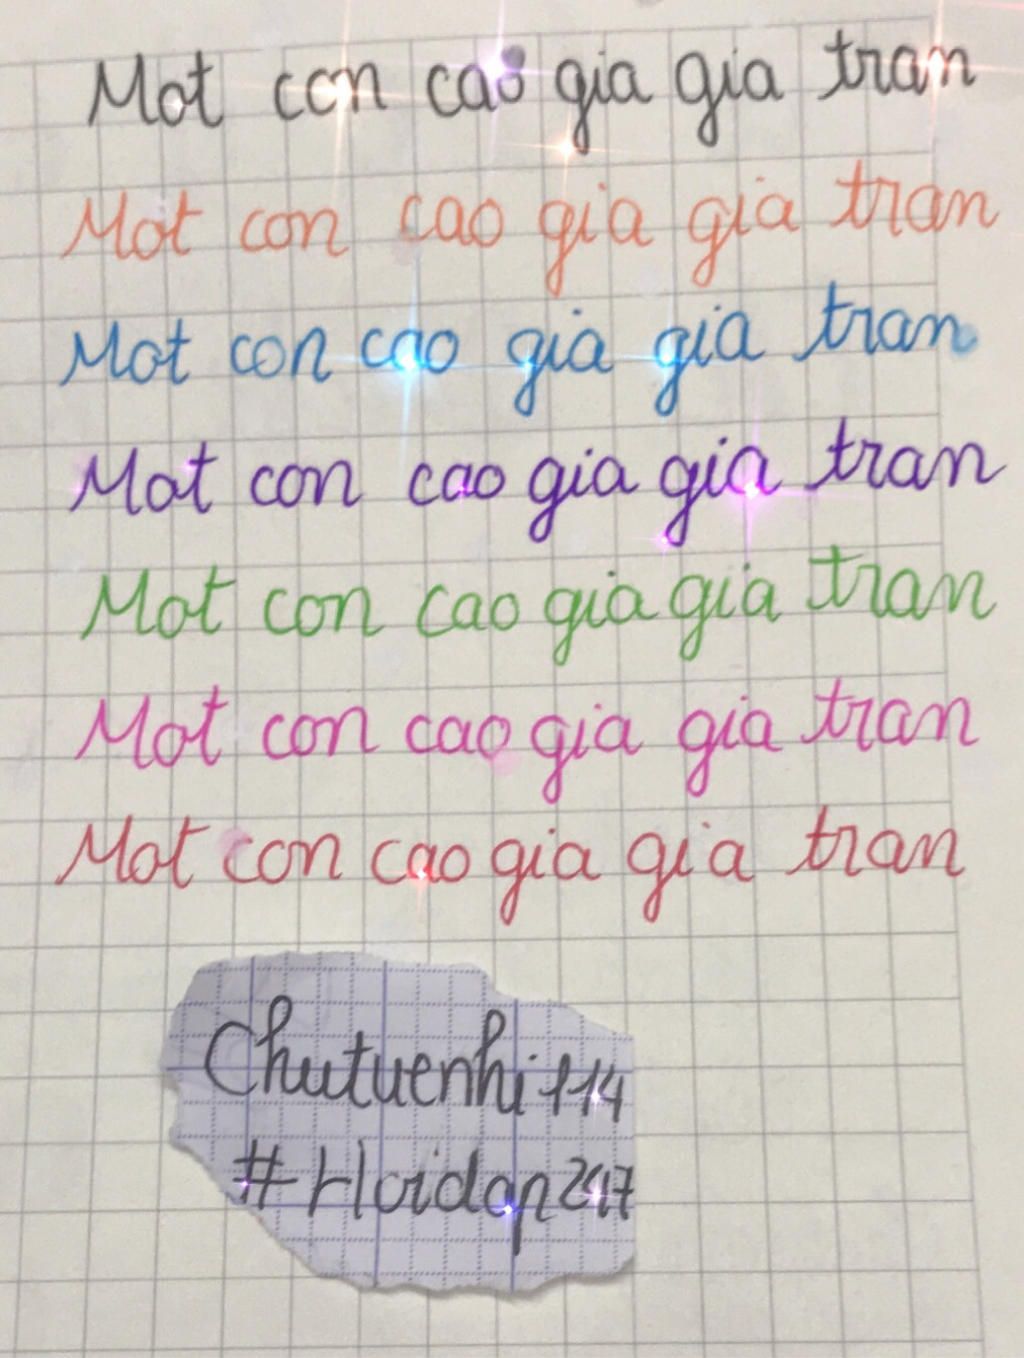 Mot con cao gia gia tran
Mot con cao gia gia tran
Mot con cao gia gia tran
Mot con cao gia gia tran
Mot con cao gia gia tran
Mot con cao gia gia tran
Mot con cao gia gia tran
Chutuenhi114
#Hoidap247